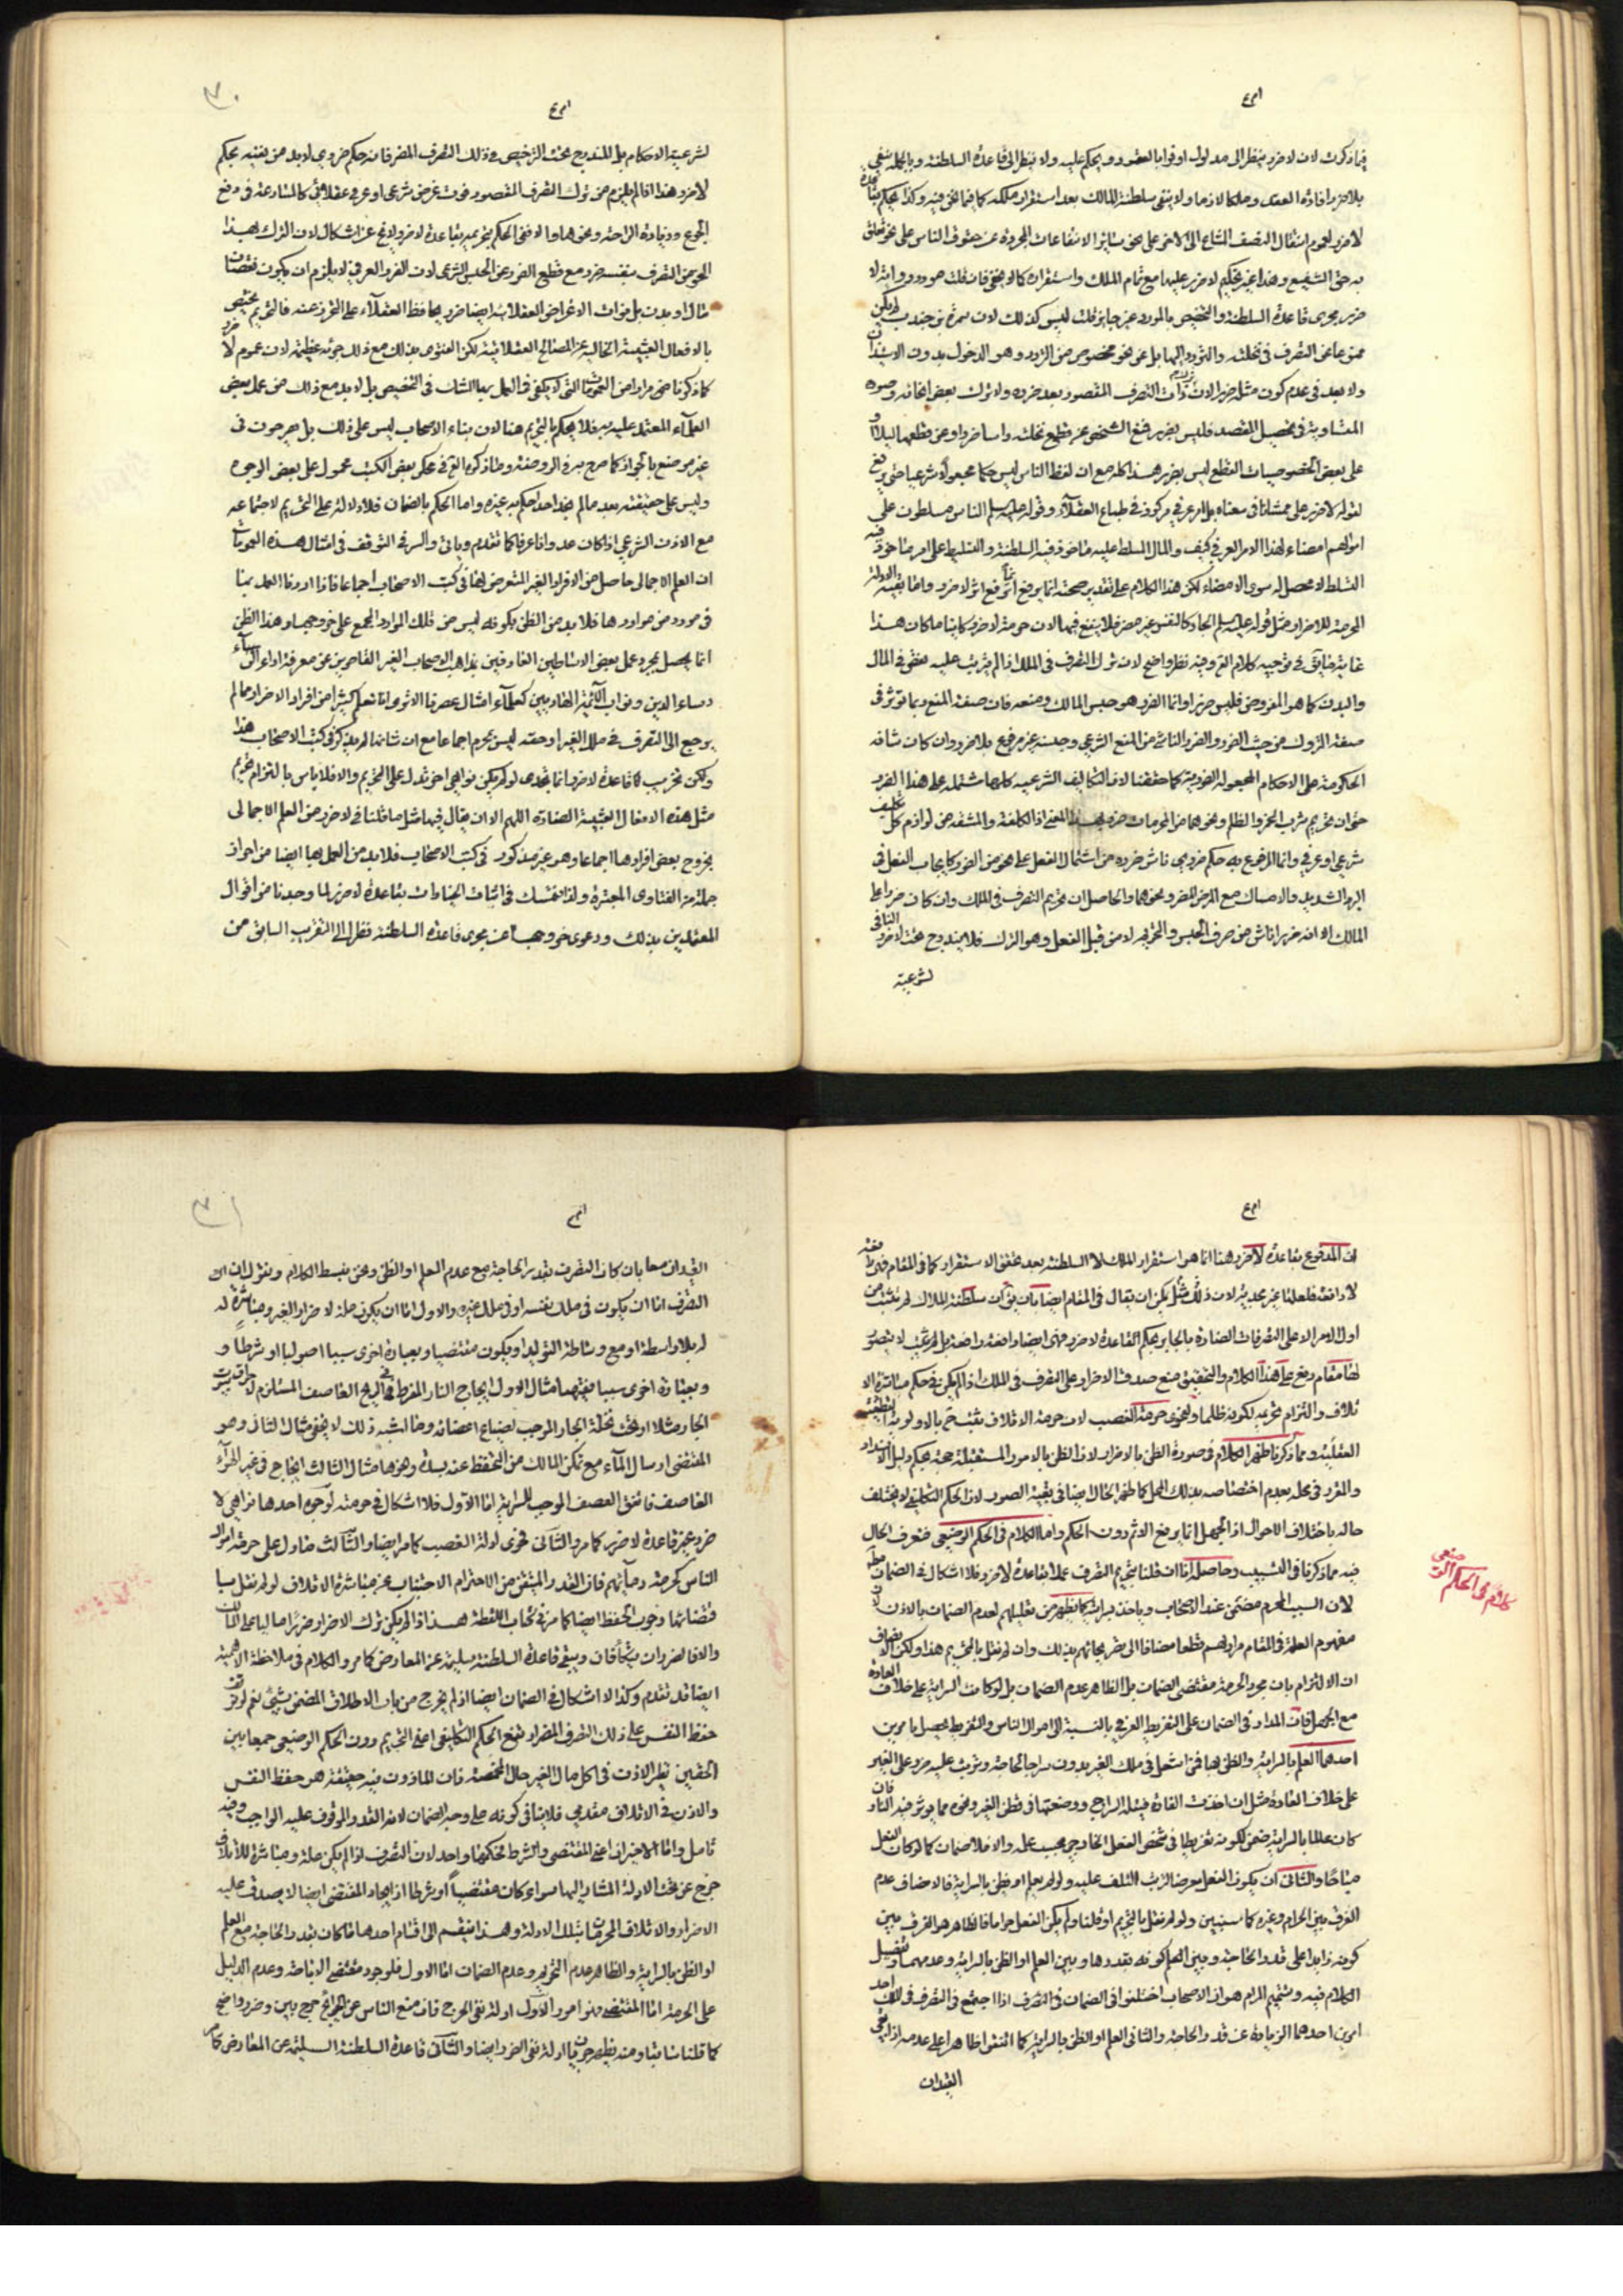 فيما ذكرت لان لاضرر ينظر الى مدلول اوفوا بالعقود ويحكم عليه ولا ينظر الى قاعدة السلطنة وبالجملة ينفى
بلاضرر افادة العقد وملكا لازما ولا ينفى سلطنة المالك بعد استقرار ملكه كما فيما نحن فيه وكذا يحكم بقاعدة
لاضرر لعموم انتقال النصف المشاع الى الاخر على نحو سائر الانتفاعات المجردة عن حقوق الناس على نحو تعلق
به حق الشفيع وهذا غير تحكيم لاضرر عليها مع تمام الملك واستقراره كما لا يخفى فان قلت هو ورود وانه لا
ضرر مجرى قاعدة السلطنة والتخصيص بالمورد غير جائز قلت ليس كذلك لان سمرة بن جندب لم يكن
ممنوعا عن التصرف فى نخلته والتردد اليها بل عن نحو مخصوص من التردد وهو الدخول بدون الاستيذان
ولا بعد فى عدم كون مثله ضررا لان فوات التصرف المقصود بعد ضررا ولا ترك بعض انحائه وصوره
المتساوية فى تحصيل المقصد فليس بضرر فمنع الشخص عن قطع نخلته راسا ضرر او عن قطعها ليلا او
على بعض الخصوصيات القطع ليس بضرر هذا كله مع ان لفظ الناس ليس حكما مجعولا شرعيا حتى يرفع
لقوله لاضرر على ممشانا فى معناه بل امر عرفى مركوز فى طباع العقلاء وقوله عليه سلم الناس مسلطون على
اموالهم امضاء لهذا الامر العرفى كيف والمال المسلط عليه ماخوذ فيه السلطنة والتسليط على امر ماخوذ فيه
التسلط لا محصل له سوى الامضاء لكن هذا الكلام على تقدير صحته انما يرفع اثر لاضرر واما بقية الادلة
المحرمة للاضرار مثل قوله عليه سلم الجار كالنفس غير مضر فلا ينفع فيها لان حرمة الاضرار كائنا ما كان هذا
غاية ما يق فى توجيه كلام القوم وفيه نظر واضح لان ترك التصرف فى الملك اذا لم يترتب عليه نقص فى المال
والبدن كما هو المفروض فليس ضررا وانما الضرر هو حبس المالك ومنعه فان صفة المنع ربما توثر فى
صفة التروك من حيث الضرر والضرر الناشى من المنع الشرعى وحبسه غير مرفوع بلاضرر وان كان شانه
الحكومة على الاحكام المجعوله الضررية كما حققنا لان التكاليف الشرعيه كلها مشتملة على هذا الضرر
حتى ان تحريم شرب الخمر والظلم ونحوهما من المحرمات ضرر بهذا المعنى اذ الكلفة والمشقة من لوازم كل تكليف
شرعى او عرفى وانما المرفوع به حكم ضررى ناش ضرره من اشتمال الفعل على نحو من الضرر كايجاب الغسل فى
البرد الشديد والامساك مع المرض المضر ونحوهما والحاصل ان تحريم التصرف فى الملك وان كان ضررا على
المالك الا انه ضرر ناش من صرف الحبس والتحريم لا من قبل الفعل وهو الترك فلا يندرج تحت لاضرر النافى
لشرعية
لشرعية الاحكام بل المندرج تحت الترخيص فى ذلك التصرف المضر فانه حكم ضررى لابد من نفيه بحكم
لاضرر هذا اذا لم يلزم من ترك التصرف المقصود فوت غرض شرعى او عرفى عقلائى كالمسارعة فى رفع
الجوع وزيادة الراحة ونحوهما والا ففى الحكم بتحريمه بقاعدة لاضرر لا يخ عن اشكال لان الترك بهذا
النحو من التصرف بنفسه ضرر مع قطع الضرر عن الحبس الشرعى لان الضرر العرفى لا يلزم ان يكون نقصان
مال او بدن بل فوات الاغراض العقلائية ايضا ضرر يحافظ العقلاء على التحرز عنه فالتحريم مختص
بالافعال العبثية الخالية عن المصالح العقلائية لكن الفتوى بذلك مع ذلك جرئة عظيمة لان عموم لاضرر
كما ذكرنا غير مرة من العمومات التى لا يكفى فى العمل بها الشك فى التخصيص بل لابد مع ذلك من عمل بعض
العلماء المعتمد عليه به فلا يحكم بالتحريم هنا لان بناء الاصحاب ليس على ذلك بل يصرحون فى
غير موضع بالجواز كما صرح به فى الروضة وما ذكره الق فى محكى بعض الكتب محمول على بعض الوجوه
وليس على حقيقته بعد مالم نجد احدا حكم به غيره واما الحكم بالضمان فلا دلالة على التحريم لاجتماعه
مع الاذن الشرعى اذا كان عدوانا عرفا كما تقدم وياتى والسر فى التوقف فى امثال هذه العمومات
ان العلم الاجمالى حاصل من الافراد الغير المتعرض لها فى كتب الاصحاب اجماعا فاذا اردنا العمل بها
فى مورد من مواردها فلابد من الظن بكونه ليس من تلك الموارد المجمع على خروجها وهذا الظن
انما يحصل بمجرد عمل بعض الاساطين العارفين بمذاهب الاصحاب الغير القاصرين عن معرفة اراء
رؤساء الدين ونواب الائمة الطاهرين كعلماء امثال عصرنا الا ترى انا نعلم كثيرا من افراد الاضرار مما لم
يرجع الى التصرف فى مال الغير او حقه ليس بمحرم اجماعا مع ان شانها لم يذكر فى كتب الاصحاب هذا
ولكن تخريب كل قاعدة لاضرر انما يجدى لو لم يكن نواهى اخر تدل على التحريم والا فلا باس بالتزام تحريم
مثل هذه الافعال العبثية الضارة اللهم الا ان يقال فيها مثل ما قلنا فى لاضرر من العلم الاجمالى
بخروج بعض افرادها اجماعا وهو غير مذكور فى كتب الاصحاب فلابد من العمل بها ايضا من احراز
جملة من الفتاوى المعتبرة ولذا نتمسك فى اثبات الخيارات بقاعدة لاضرر لما وجدنا من اقوال
المعتمدين بذلك ودعوى خروجها عن مجرى قاعدة السلطنة نظرا الى التقريب السابق من
ان المدفوع بقاعدة لاضرر هنا انما هو استقرار الملك لا السلطنة بعد تحقق الاستقرار كما فى المقام فهى مثبتة
لا دافعة فلعلها غير مجدية لان ذلك مثل يمكن ان يقال فى المقام ايضا بان يق ان سلطنة الملاك لم تثبت من
اول الامر الا على التصرفات الضارة بالجار بحكم القاعدة لاضرر فهى ايضا دافعة ورافعة بل لم يثبت لا بتصور
لها مقام رفع على هذا الكلام والتحقيق منع صدق الاضرار على التصرف فى الملك اذا لم يكن فى حكم مباشرة الا
تلاف والتزام تحريمه لكونه ظلما ولفحوى حرمة الغصب لان حرمة الاتلاف تثبت ح بالاولوية القطعية
العقلية ومما ذكرنا ظهر الكلام فى صورة الظن بالاضرار لان الظن بالامور المستقبلة حجة بحكم دليل الانسداد
والمقرر فى محله بعدم اختصاصه بذلك المحل كما ظهر الحال ايضا فى بقية الصور لان الحكم التكليفى لا يختلف
حاله باختلاف الاحوال اذ الجهل انما يرفع الاثم دون الحكم واما الكلام فى الحكم الوضعى فتعرف الحال
فيه مما ذكرنا فى التسبيب وحاصله انا ان قلنا بتحريم التصرف عملا بقاعدة لاضرر فلا اشكال فى الضمان
لان السبب المحرم مضمن عند الاصحاب ويؤخذ به كما يظهر من تعليلهم لعدم الضمان بالاذن
مفهوم العلة فى المقام مرادهم قطعا مضافا الى تصريحاتهم بذلك وان لم نقل بالتحريم هذا ولكن الانصاف
ان الالتزام بان مجرد الحرمة مقتضى الضمان بل الظاهر عدم الضمان بل لو كانت السراية على خلاف العادة
مع الجهل فان المدار فى الضمان على التفريط العرفى بالنسبة الى اموال الناس والتفريط يحصل بامرين
احدهما العلم بالسراية والظن بها فمن اشعل فى ملك الغير بدون سراجا لحاجة وترتب عليه ضرر على الغير
على خلاف العادة مثل ان اخذت الفارة فتيلة السراج ووضعتها فى قطن الغير ونحوه مما يوثر فيه النار فان
كان عالما بالسراية ضمن لكونه تفريطا فى شخص الفعل الخارجى بحسب علمه والا فلا ضمان كما لو كان الفعل
مباحا والثانى ان يكون الفعل معرضا لترتب التلف عليه ولو لم يعلم او يظن بالسراية فالانصاف عدم
الفرق بين الحرام وغيره كما سنبين ولو لم نقل بالتحريم او قلنا ولم يكن الفعل حراما فالظاهر هو الفرق بين
كونه زايدا على قدر الحاجة وبين العلم كونه بقدرها وبين العلم او الظن بالسراية وعدمهما وتفصيل
الكلام فيه وتتميم المرام هو ان الاصحاب اختلفوا فى الضمان فى التصرف اذا اجتمع فى التصرف فى الملك احد
امرين احدهما الزيادة عن قدر الحاجة والثانى العلم او الظن بالسراية كما اتفقوا ظاهرا على عدمه اذا انتفى
القيدان
كلام فى الحكم الوضعى
القيدان معا بان كان التصرف بقدر الحاجة مع عدم العلم او الظن ونحن نبسط الكلام ونقول ان
التصرف اما ان يكون فى ملك نفسه او فى ملك غيره والاول اما ان يكون علة لاضرار الغير ومباشرة له
له بلا واسطة او مع وساطة التوليد او يكون مقتضيا وبعبارة اخرى سببا اصوليا او شرطا و
وبعبارة اخرى سببا فقهيا مثال الاول ايجاج النار المفرط فى الريح العاصف المستلزم لاحراق بيت
الجار مثلا او تحت نخلة الجار الموجب لضياع اغصانه وما اشبه ذلك لا يخفى مثال الثانى وهو
المقتضى ارسال الماء مع تمكن المالك من التحفظ عنه بسد ونحوها مثال الثالث ايجاج فى غير الهواء
العاصف فاتفق العصف الموجب للسراية اما الاول فلا اشكال فى حرمته لوجوه احدها نواهى لا
ضرر غير قاعدة لاضرر كما مر والثانى فحوى ادلة الغصب كما مر ايضا والثالث ما دل على حرمة اموال
الناس كحرمة دمائهم فان القدر المتيقن من الاحترام الاجتناب عن مباشرة الاتلاف لو لم نقل بما
قتضائها وجوب الحفظ ايضا كما مر فى كتاب اللقطة هذا اذا لم يكن ترك الاضرار ضررا ماليا على المالك
والا فالضرران يتكافئان ويبقى قاعدة السلطنة سليمة عن المعارض كما مر والكلام فى ملاحظة الاهمية
ايضا قد تقدم وكذا لا اشكال فى الضمان ايضا اذ لم يخرج من باب الاطلاق المضمن بشىء نعم لو توقف
حفظ النفس على ذلك التصرف المضر ارتفع الحكم التكليفى اعنى التحريم دون الحكم الوضعى جمعا بين
الحقين نظير الاذن فى اكل مال الغير حال المخمصة فان الماذون فيه حقيقة هو حفظ النفس
والاذن فى الاتلاف مقدمى فلا ينافى كونه على وجه الضمان لانه القدر الموقوف عليه الواجب وفيه
تامل واما الاخيران اعنى المقتضى والشرط فحكمهما واحد لان التصرف اذا لم يكن علة ومباشرة للاتلاف
خرج عن تحت الادلة المشار اليها سواء كان مقتضيا او شرطا اذ ايجاد المقتضى ايضا لا يصدق عليه
الاضرار والاتلاف المحرمان بتلك الادلة وهذا ينقسم الى اقسام احدها ما كان بقدر الحاجة مع العلم
او الظن بالسراية والظاهر عدم التحريم وعدم الضمان اما الاول فلوجود مقتضى الاباحة وعدم الدليل
على الحرمة اما المقتضى فهو امور الاول ادلة نفى الحرج فان منع الناس عن الحوائج حرج بين وضرر واضح
كما قلنا سابقا ومنه يظهر جريان ادلة نفى الضرر ايضا والثانى قاعدة السلطنة السليمة عن المعارض كما مر